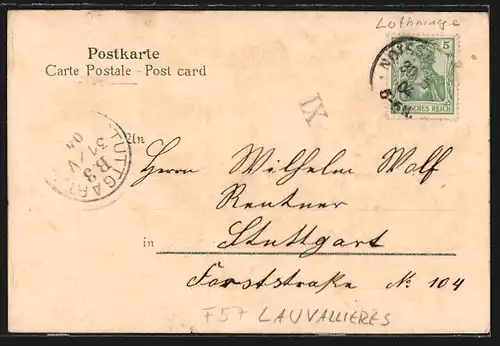 Lothringe
Postkarte
Carte Postale - Post card
5
DEUTSCHES REICH
IX
STUTTGART
B.3
31/V
04
An
Herrn Wilhelm Wolf
Rentner
in Stuttgart
Forststraße No 104
F57 LAUVALLIERES